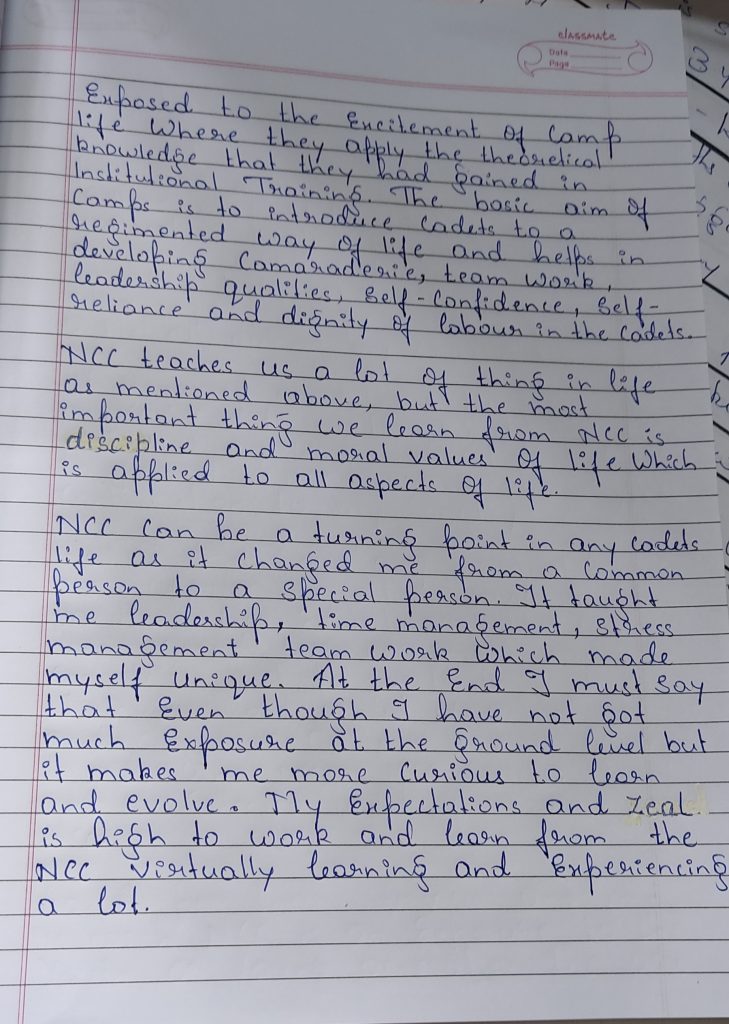 classmate
Date
Page
Exposed to the Excitement of Camp
life where they apply the theoretical
knowledge that they had gained in
Institutional Training. The basic aim of
Camps is to introduce Cadets to a
regimented way of life and helps in
developing Camaraderie, team work,
leadership qualities, Self-Confidence, Self-
reliance and dignity of labour in the Cadets.
NCC teaches us a lot of thing in life
as mentioned above, but the most
important thing we learn from NCC is
discipline and moral values of life which
is applied to all aspects of life.
NCC Can be a turning point in any Cadets
life as it Changed me from a Common
person to a special person. It taught
me leadership, time management, Stress
management team work which made
myself unique. At the End I must say
that Even though I have not got
much Exposure at the ground level but
it makes me more Curious to learn
and evolve. My Expectations and zeal
is high to work and learn from the
NCC virtually learning and Experiencing
a lot.